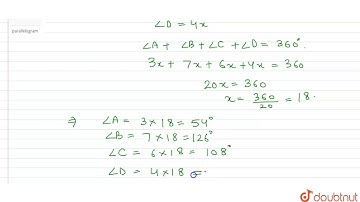 parallelogram
∠D = 4x
∠A + ∠B + ∠C + ∠D = 360°.
3x + 7x + 6x + 4x = 360
20x = 360
x = 360/20 = 18.
⇒ ∠A = 3×18 = 54°
∠B = 7×18 = 126°
∠C = 6×18 = 108°
∠D = 4×18 =
doubtnut